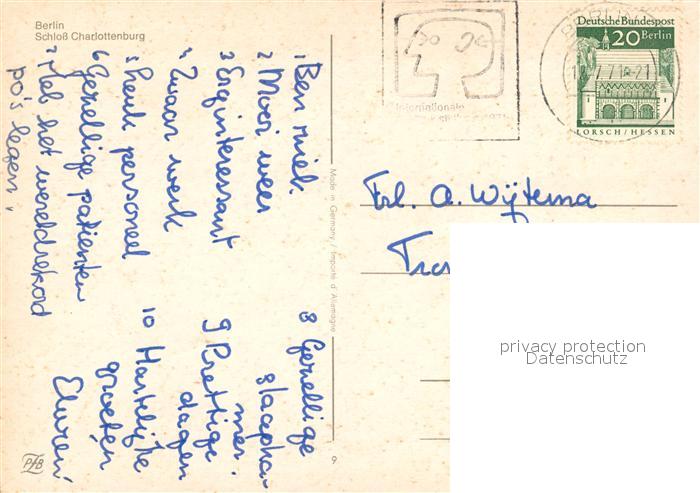 Berlin
Schloß Charlottenburg
1 Ben niet
2 Mooi weer
3 Erg interessant
4 Zwaar werk
5 Leuk personeel
6 Gezellige patienten
7 Heb het wereldrekord
po's legen.
8 Gezellige
slaapka-
mer.
9 Prettige
dagen
10 Hartelijke
groeten
Made in Germany / Importé d'Allemagne
9
PfB
Internationale
Deutsche Bundespost
20 Berlin
LORSCH/HESSEN
BERLIN
Frl. A. Wijtema
privacy protection
Datenschutz